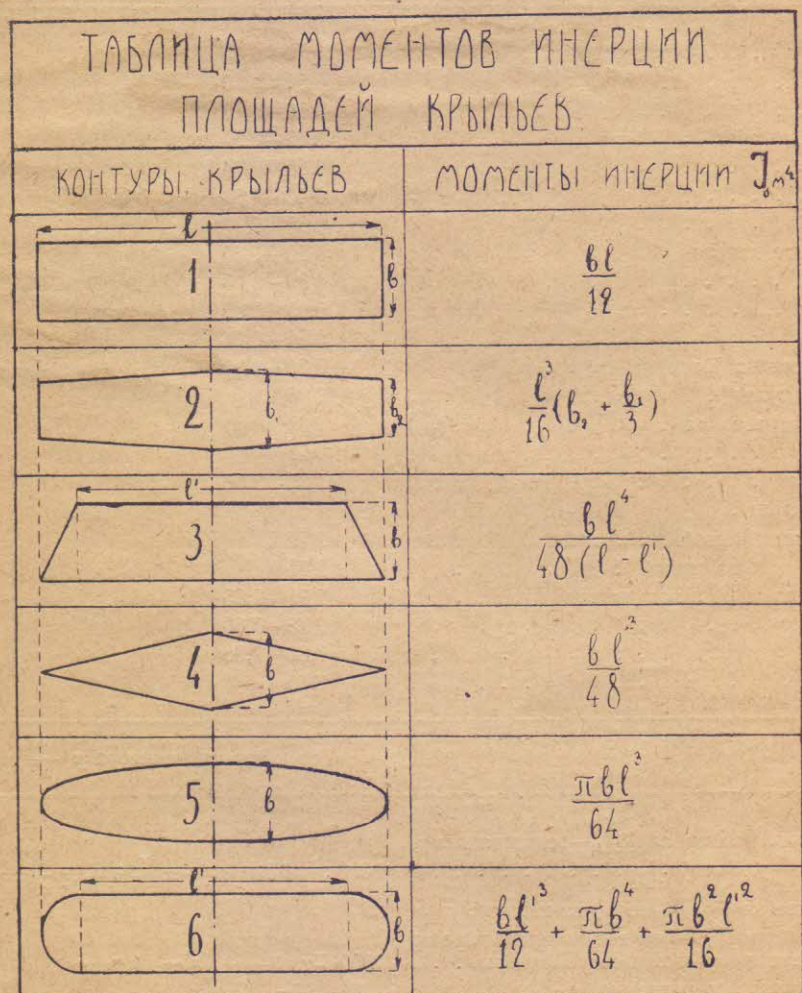 ТАБЛИЦА МОМЕНТОВ ИНЕРЦИИ
ПЛОЩАДЕЙ КРЫЛЬЕВ.
КОНТУРЫ КРЫЛЬЕВ
МОМЕНТЫ ИНЕРЦИИ J₀ м⁴
l
1
в
вl/12
2
в₁
в₂
l³/16(в₂ + в₁/3)
l'
3
в
вl⁴/48(l - l')
4
в
вl³/48
5
в
πвl³/64
l'
6
в
вl'³/12 + πв⁴/64 + πв²l'²/16